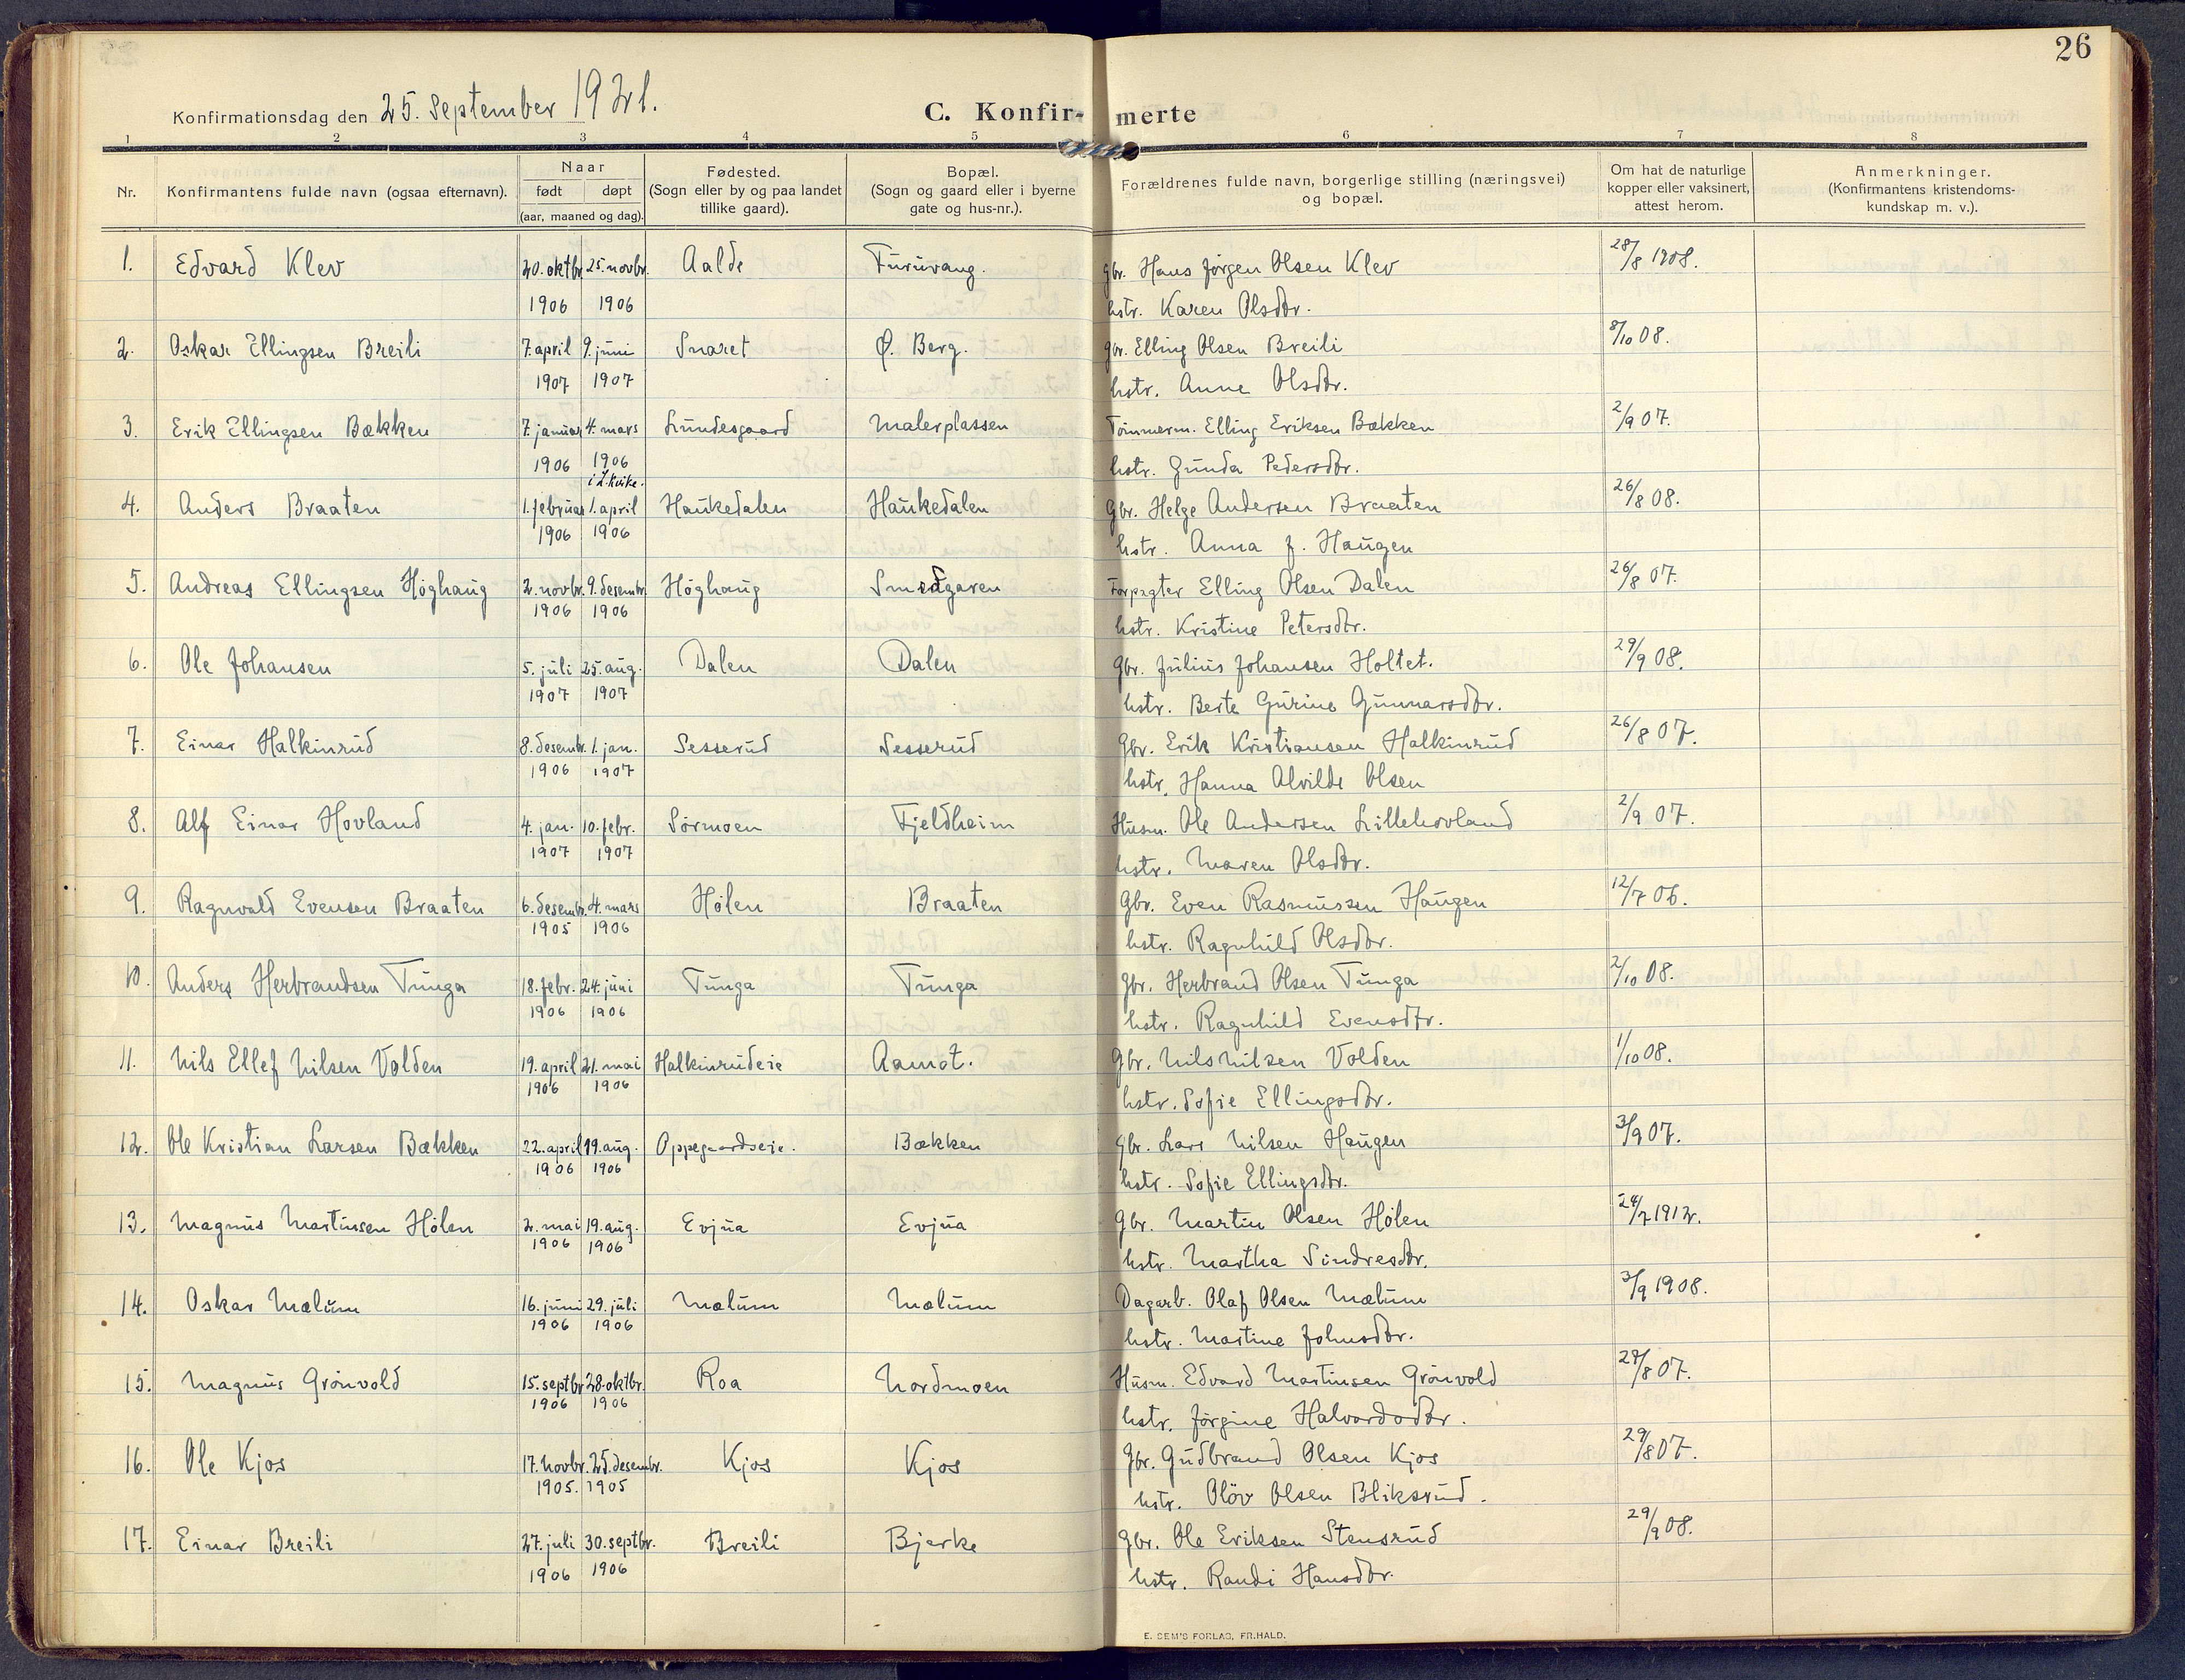 26
Konfirmationsdag den 25. September 1921.
C. Konfirmerte
1 2 3 4 5 6 7 8
Nr. Konfirmantens fulde navn (ogsaa efternavn). Naar født døpt (aar, maaned og dag). Fødested. (Sogn eller by og paa landet tillike gaard). Bopæl. (Sogn og gaard eller i byerne gate og hus-nr.). Forældrenes fulde navn, borgerlige stilling (næringsvei) og bopæl. Om hat de naturlige kopper eller vaksinert, attest herom. Anmerkninger. (Konfirmantens kristendoms-kundskap m. v.).
1. Edvard Klev 20. oktbr. 25. novbr. Aalde Furuvang. Gbr. Hans Jørgen Olsen Klev 28/8 1908.
1906 1906 hstr. Karen Olsdtr.
2. Oskar Ellingsen Breili 7. april 9. juni Snaret Ø. Berg. Gbr. Elling Olsen Breili 8/10 08.
1907 1907 hstr. Anne Olsdtr.
3. Erik Ellingsen Bækken 7. januar 4. mars Lundesgaard Malerplassen Tømmerm. Elling Eriksen Bækken 2/9 07.
1906 1906 hstr. Gunda Pedersdtr.
4. Anders Braaten 1. februar 1. april Haukedalen Haukedalen Gbr. Helge Andersen Braaten 26/8 08.
1906 1906 hstr. Anna f. Haugen
5. Andreas Ellingsen Høghaug 2. novbr. 9. desembr. Høghaug Smedgaren Forpagter Elling Olsen Dalen 26/8 07.
1906 1906 hstr. Kristine Petersdtr.
6. Ole Johansen 5. juli 25. aug. Dalen Dalen Gbr. Julius Johansen Holtet. 29/9 08.
1907 1907 hstr. Berte Gurine Gunnarsdtr.
7. Einar Halkinrud 8. desembr. 1. jan. Sesserud Sesserud Gbr. Erik Kristiansen Halkinrud 26/8 07.
1906 1907 hstr. Hanna Alvilde Olsen
8. Alf Einar Hovland 4. jan. 10. febr. Sørmoen Fjeldheim Husm. Ole Andersen Lillehovland 2/9 07.
1907 1907 hstr. Maren Olsdtr.
9. Ragnvald Evensen Braaten 6. desembr. 4. mars Hølen Braaten Gbr. Even Rasmussen Haugen 12/7 06.
1905 1906 hstr. Ragnhild Olsdtr.
10. Anders Herbrandsen Tunga 18. febr. 24. juni Tunga Tunga Gbr. Herbrand Olsen Tunga 2/10 08.
1906 1906 hstr. Ragnhild Evensdtr.
11. Nils Ellef Nilsen Volden 19. april 21. mai Halkinrudeie Aamot. Gbr. Nils Nilsen Volden 1/10 08.
1906 1906 hstr. Sofie Ellingsdtr.
12. Ole Kristian Larsen Bækken 22. april 19. aug. Oppegaardseie. Bækken Gbr. Lars Nilsen Haugen 3/9 07.
1906 1906 hstr. Sofie Ellingsdtr.
13. Magnus Martinsen Hølen 2. mai 19. aug. Evjua Evjua Gbr. Martin Olsen Hølen 24/7 1912.
1906 1906 hstr. Martha Sindresdtr.
14. Oskar Mælum 16. juni 29. juli Mælum Mælum Dagarb. Olaf Olsen Mælum 3/9 1908.
1906 1906 hstr. Martine Johnsdtr.
15. Magnus Grønvold 15. septbr. 28. oktbr. Roa Nordmoen Husm. Edvard Martinsen Grønvold 27/8 07.
1906 1906 hstr. Jørgine Halvordsdtr.
16. Ole Kjos 17. novbr. 25. desembr. Kjos Kjos Gbr. Gudbrand Olsen Kjos 29/8 07.
1905. 1905 hstr. Oløv Olsen Bliksrud.
17. Einar Breili 27. juli 30. septbr. Breili Bjerke Gbr. Ole Eriksen Stensrud 29/9 08.
1906 1906 hstr. Randi Hansdtr.
E. SEM'S FORLAG, FR.HALD.